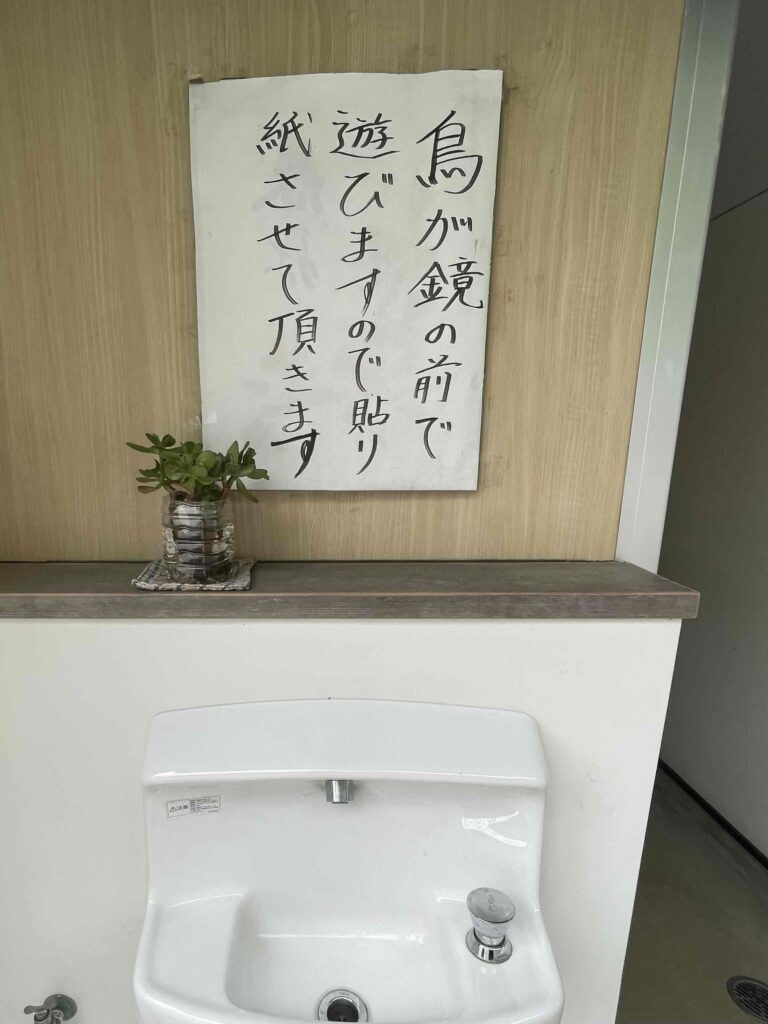 鳥が鏡の前で
遊びますので貼り
紙させて頂きます